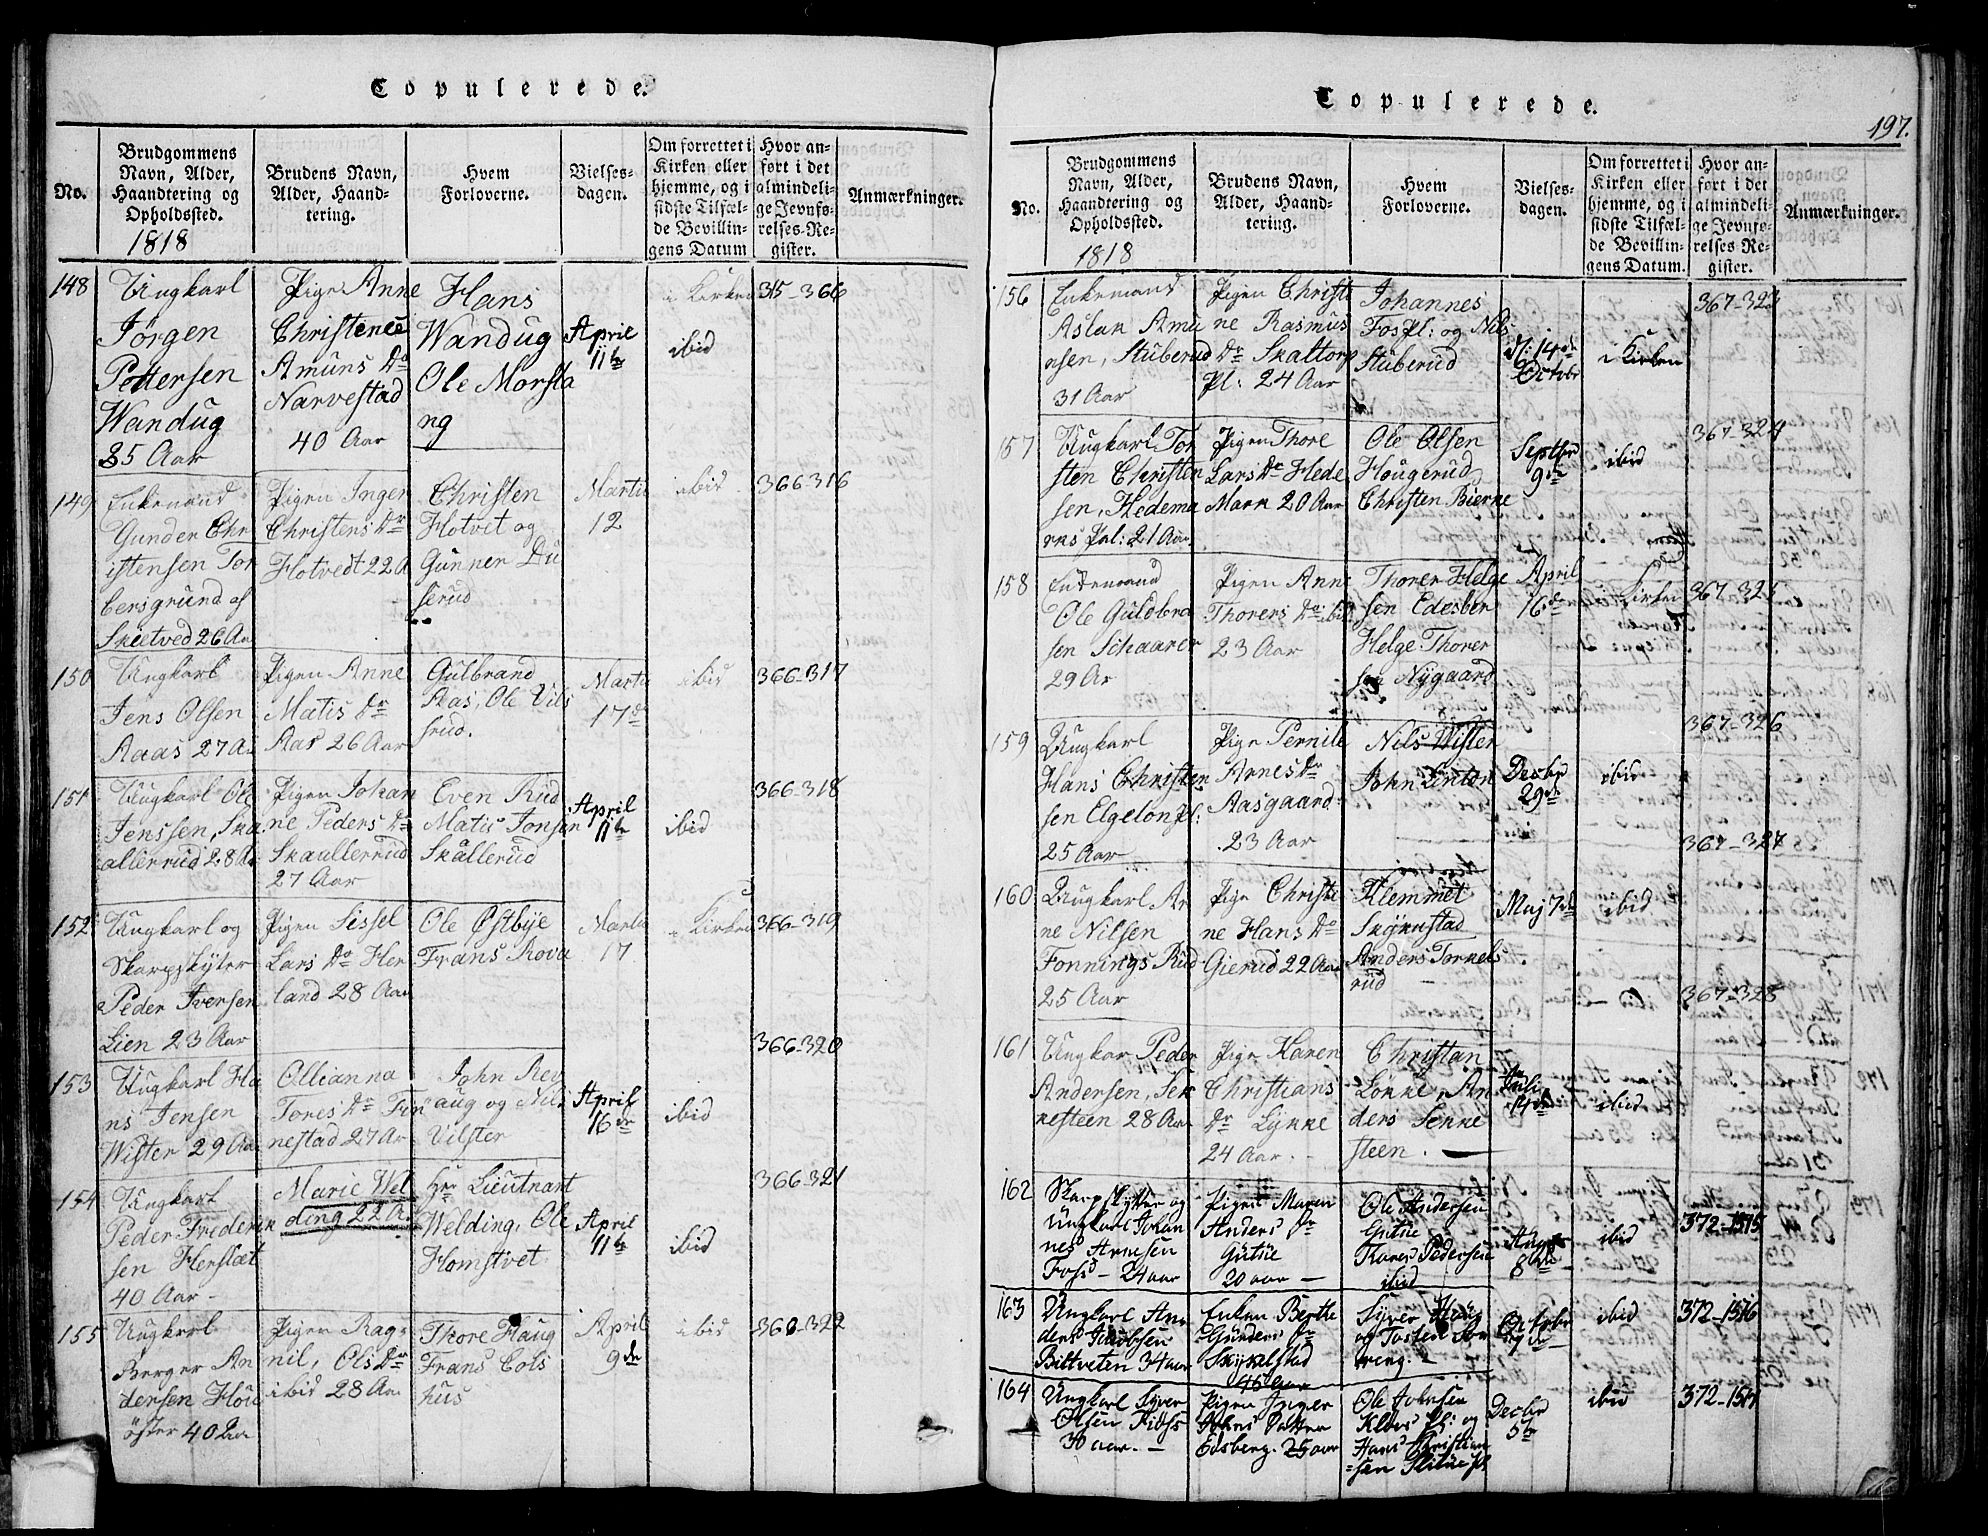 Copulerede.
No.
Brudgommens
Navn, Alder,
Haandtering og
Opholdssted.
1818
Brudens Navn,
Alder, Haand-
tering.
Hvem
Forloverne.
Vielses-
dagen.
Om forrettet i
Kirken eller
hjemme, og i
sidste Tilfæl-
de Bevillin-
gens Datum
Hvor an-
ført i det
almindeli-
ge Jevnfø-
relses-Re-
gister.
Anmærkninger.
148
Ungkarl
Jörgen
Pettersen
Wandug
35 Aar
Pigen Anne
Christenes
Amuns Dr
Narvestad
40 Aar
Hans
Wandug
Ole Morsta
ng
April
11te
i Kirken
ibid
315-366
149
Enkemand
Gunder Chr
istensen Tor
bersgrund af
Skietved 26 Aa
Pigen Inger
Christens Dr
Flotvedt 22 A
Christen
Flotvet og
Gunner Du
serud
Martii
12
ibid
366-316
150
Ungkarl
Jens Olsen
Aaas 27 A.
Pigen Anne
Matis Dr
Aas 26 Aar
Gulbrand
Aas, Ole Vils
srud.
Martii
17d
ibid
366-317
151
Ungkarl Ole
Jenssen, Ska
allerrud 28 Aa
Pigen Johan
ne Peders Dr
Skaallerrud
27 Aar
Even Rud
Matis Jonsen
Skallerud
April
11te
ibid
366-318
152
Ungkarl og
Skarpskyter
Peder Iversen
Lien 23 Aar
Pigen Sissel
Lars Dr Her
land 28 Aar
Ole Østbye
Frans Rova
Martii
17
i Kirken
366-319
153
Ungkarl Ha
ns Jensen
Wister 29 Aar
Ollianna
Tores Dr Fin
nestad 27 Ar
John Rev
aug og Nils
Vilster
April
16de
ibid
366-320
154
Ungkarl
Peder Frederik
sen Herslæt
40 Aar-
Marie Wel
ding 22 A.
Hrr Lieutnant
Welding, Ole
Homstvet
April
11te
ibid
366-321
155
Ungkarl
Berger An
dersen Hou
öster 40 Aar
Pigen Rag-
nil, Ols Dr
ibid 28 Aar
Thore Haug
Frans Cols
hus
April
9de
ibid
366-322
Copulerede.
197.
No.
Brudgommens
Navn, Alder,
Haandtering og
Opholdssted.
1818
Brudens Navn,
Alder, Haand-
tering.
Hvem
Forloverne.
Vielses-
dagen.
Om forrettet i
Kirken eller
hjemme, og i
sidste Tilfæl-
de Bevillin-
gens Datum.
Hvor an-
ført i det
almindeli-
ge Jevnfø-
relses Re-
gister.
Anmærkninger.
156
Enkemand
Aslak Amu
nsen, Stuberud
31 Aar
Pigen Christi
ne Rasmus
Dr Skaltorp
Pl: 24 Aar
Johannes
Fos Pl: og Nils
Stuberud
d: 14de
Octobr
i Kirken
367-323
157
Ungkarl Tor
sten Christen
sen, Hedema
rks Pal: 21 Aar
Pigen Thore
Lars Dr Hede
Mark 20 Aar
Ole Olsen
Hougerud
Christen Bierne
Septbr
9de
ibid
367-324
158
Enkemand
Ole Guldbra
sen Schaarer
29 Ar
Pigen Anne
Thorers Dr ibid
23 Aar
Thorer Helge
sen Edesber
Helge Thorer
sen Nygaard
April
16de
i Kirken
367-325
159
Ungkarl
Hans Christen
sen Elgeton pl:
25 Aar
Pige Pernile
Arnes Dr
Aasgaard
23 Aar
Nils Wister
John Linton
Decbr
29de
ibid
367-326
160
Ungkarl Ar
ne Nilsen
Fonnings Rud
25 Aar
Pige Christi
ne Hans Dr
Gierud 22 Aar
Klemmet
Skÿkustad
Anders Tornels
rud
Maj 7de
ibid
367-327
161
Ungkar Peder
Andersen, Sen
nesteen 28 Aar
Pige Karen
Christians
Dr Lÿkke
24 Aar.
Christan
Lökke, An
ders Senne
steen.
Juli
14de
ibid
367-328
162
Skarpskytter og
Ungkarl Johan
nes Arnesen
Foss- 24 aar
Pigen Maren
Anders Dr
Gutue
20 aar-
Ole Andersen
Gutue
Pedersen
ibid
Aug
8de
ibid
372-1515
163
Ungkarl An
ders Jacobsen
Biltveten 34 aar
Enken Berthe
Gunders Dr
Skÿkelstad
46 aar
Syver Haug
og Tosten
October
7de
ibid
372-1516
164
Ungkarl Syver
Olsen Foss
30 aar.-
Pigen Inger
Johns Datter
Edsberg. 25 aar
Ole Johnsen
Pl: og
Hans Christian
sen
Decbr
5te
ibid
372-1517